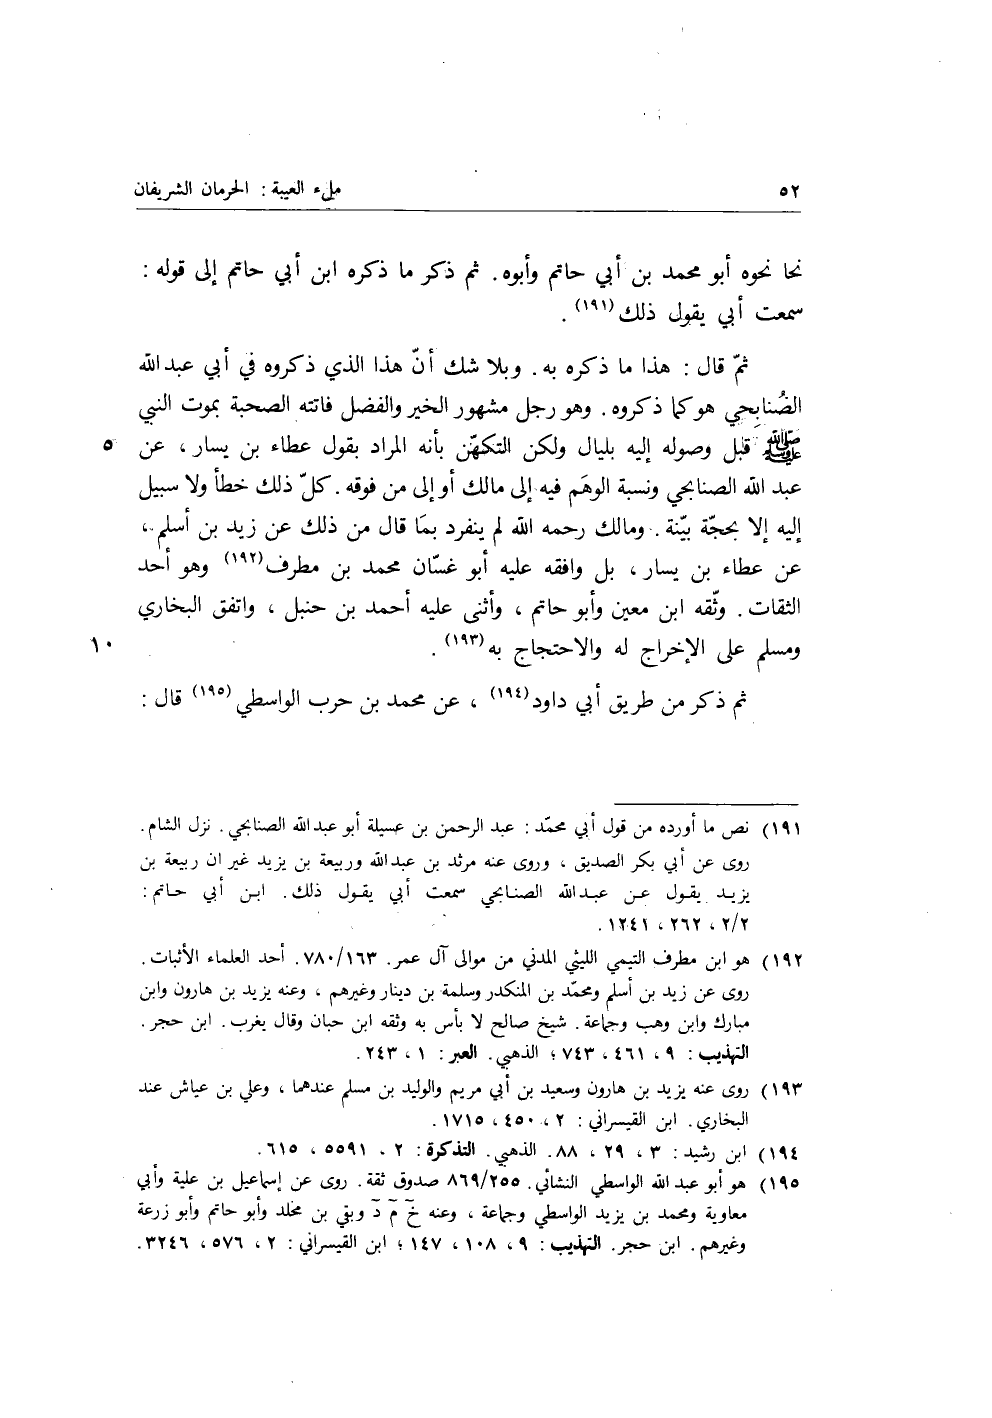 ٥٢ ملء العيبة : الحرمان الشريفان
نحا نحوه أبو محمد بن أبي حاتم وأبوه. ثم ذكر ما ذكره ابن أبي حاتم إلى قوله :
سمعت أبي يقول ذلك(١٩١) .
ثمّ قال : هذا ما ذكره به. وبلا شك أنّ هذا الذي ذكروه في أبي عبدالله
الصُنابِحي هو كما ذكروه. وهو رجل مشهور الخير والفضل فاتته الصحبة بموت النبي
ﷺ قبل وصوله إليه بليال ولكن التكهّن بأنه المراد بقول عطاء بن يسار ، عن ٥
عبد الله الصنابحي ونسبة الوهَم فيه إلى مالك أو إلى من فوقه. كلّ ذلك خطأ ولا سبيل
إليه إلا بحجّة بيّنة. ومالك رحمه الله لم ينفرد بمَا قال من ذلك عن زيد بن أسلم ،
عن عطاء بن يسار ، بل وافقه عليه أبو غسّان محمد بن مطرف(١٩٢) وهو أحد
الثقات. وثّقه ابن معين وأبو حاتم ، وأثنى عليه أحمد بن حنبل ، واتفق البخاري
ومسلم على الإخراج له والاحتجاج به(١٩٣) . ١٠
ثم ذكر من طريق أبي داود(١٩٤) ، عن محمد بن حرب الواسطي(١٩٥) قال :
١٩١) نص ما أورده من قول أبي محمّد : عبد الرحمن بن عسيلة أبو عبدالله الصنابحي. نزل الشام.
روى عن أبي بكر الصديق ، وروى عنه مرثد بن عبدالله وربيعة بن يزيد غير ان ربيعة بن
يزيد يقول عن عبدالله الصنابحي سمعت أبي يقول ذلك. ابن أبي حاتم :
٢/٢ ، ٢٦٢ ، ١٢٤١.
١٩٢) هو ابن مطرف التيمي الليثي المدني من موالى آل عمر. ٧٨٠/١٦٣. أحد العلماء الأثبات.
روى عن زيد بن أسلم ومحمّد بن المنكدر وسلمة بن دينار وغيرهم ، وعنه يزيد بن هارون وابن
مبارك وابن وهب وجماعة. شيخ صالح لا بأس به وثقه ابن حبان وقال يغرب. ابن حجر.
التهذيب : ٩ ، ٤٦١ ، ٧٤٣ ؛ الذهبي. العبر : ١ ، ٢٤٣.
١٩٣) روى عنه يزيد بن هارون وسعيد بن أبي مريم والوليد بن مسلم عندهما ، وعلي بن عياش عند
البخاري. ابن القيسراني : ٢ ، ٤٥٠ ، ١٧١٥.
١٩٤) ابن رشيد : ٣ ، ٢٩ ، ٨٨. الذهبي. التذكرة : ٢ ، ٥٥٩١ ، ٦١٥.
١٩٥) هو أبو عبد الله الواسطي النشائي. ٨٦٩/٢٥٥ صدوق ثقة. روى عن إسماعيل بن علية وأبي
معاوية ومحمد بن يزيد الواسطي وجماعة ، وعنه خَ مَ دَ وبقي بن مخلد وأبو حاتم وأبو زرعة
وغيرهم. ابن حجر. التهذيب : ٩ ، ١٠٨ ، ١٤٧ ؛ ابن القيسراني : ٢ ، ٥٧٦ ، ٣٢٤٦.